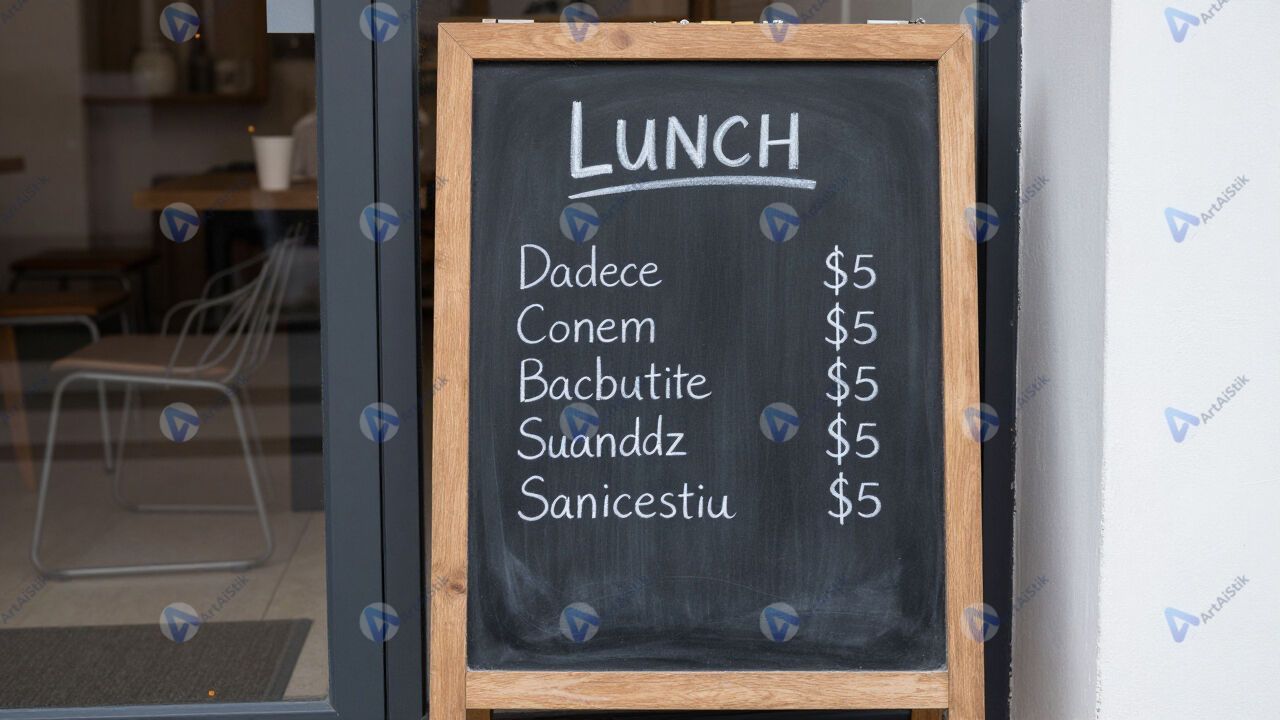 LUNCH
Dadece $5
Conem $5
Bacbutite $5
Suanddz $5
Sanicestiu $5
ArtAiStik
ArtAiStik
ArtAiStik
ArtAiStik